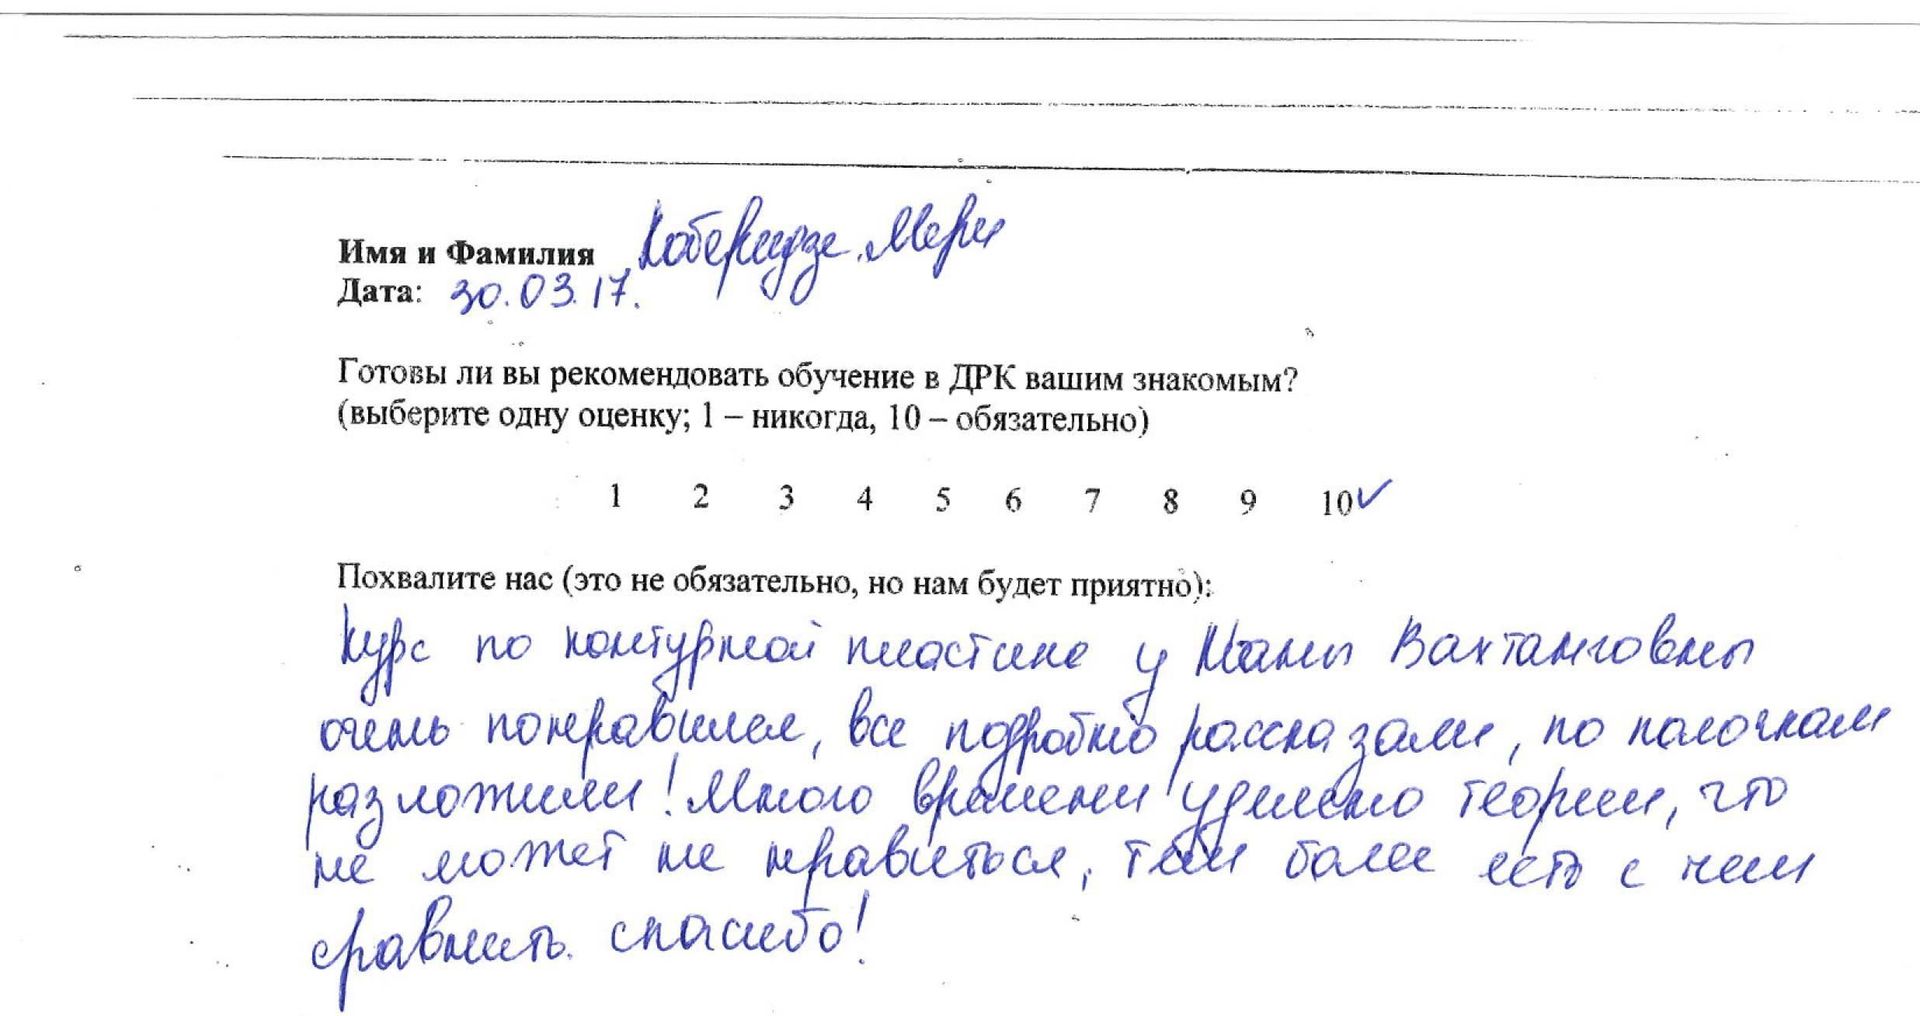 Имя и Фамилия Коберидзе Мери
Дата: 30.03.17.
Готовы ли вы рекомендовать обучение в ДРК вашим знакомым?
(выберите одну оценку; 1 – никогда, 10 – обязательно)
1 2 3 4 5 6 7 8 9 10✓
Похвалите нас (это не обязательно, но нам будет приятно):
Курс по контурной пластике у Наны Вахтанговны
очень понравился, все подробно рассказали, по полочкам
разложили! Много времени уделено теории, что
не может не нравиться, тем более есть с чем
сравнить. спасибо!